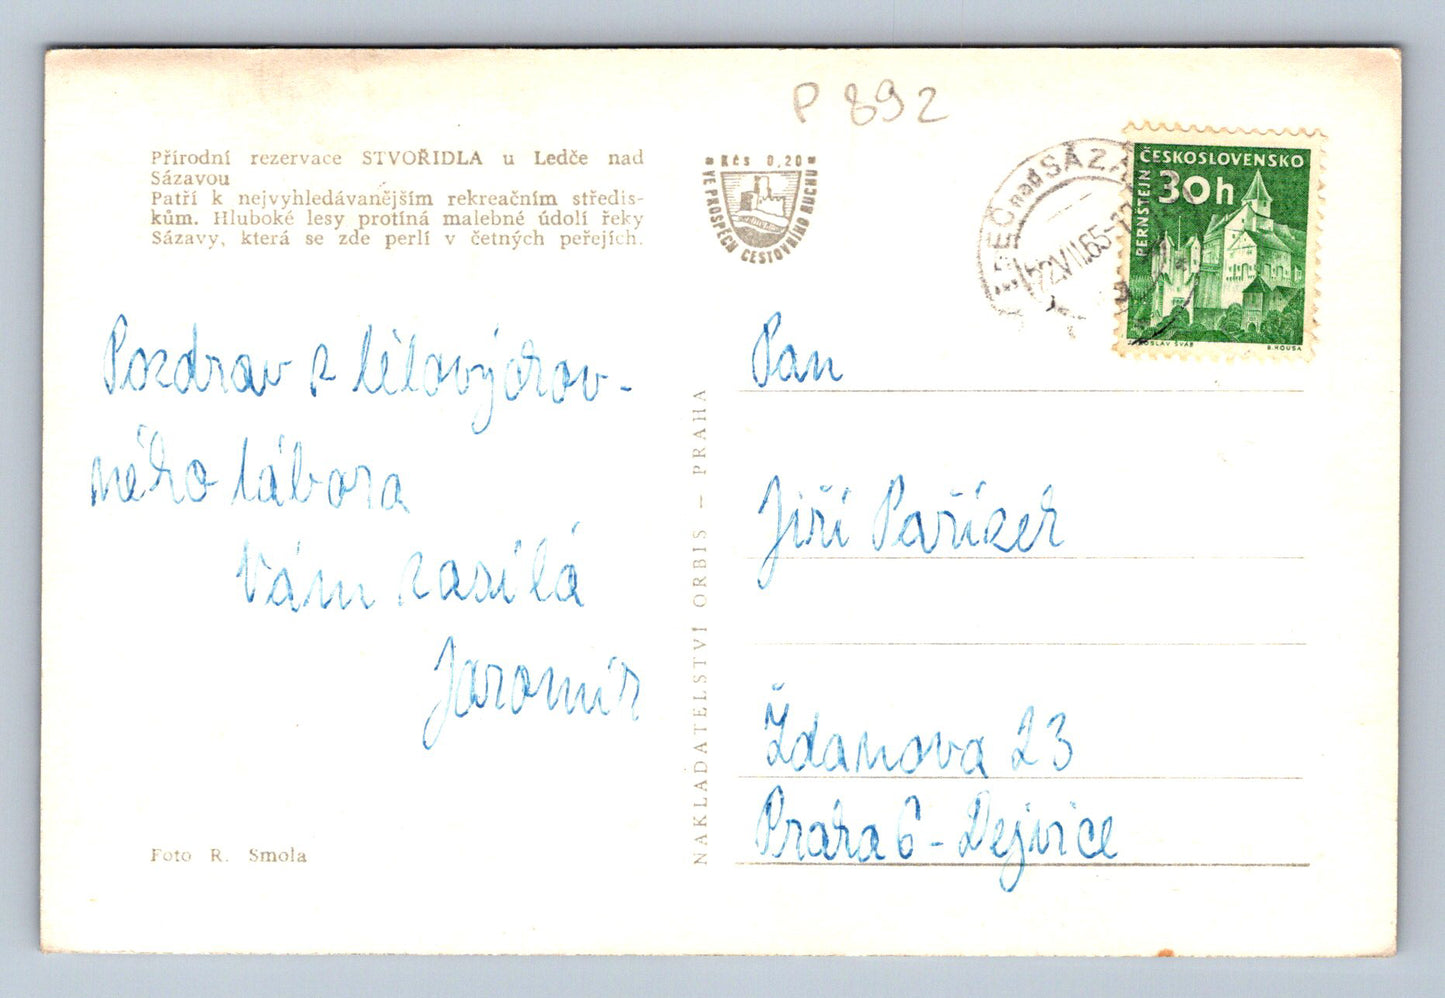 P 892
Přírodní rezervace STVOŘIDLA u Ledče nad
Sázavou
Patří k nejvyhledávanějším rekreačním středis-
kům. Hluboké lesy protíná malebné údolí řeky
Sázavy, která se zde perlí v četných peřejích.
Kčs 0,20
VE PROSPĚCH CESTOVNÍHO RUCHU
nad SÁZA
22.VII.65
ČESKOSLOVENSKO
30h
PERNŠTEJN
JAROSLAV ŠVÁB
B. HOUSA
Pozdrav z tělovýchov-
ného tábora
Vám zasílá
Jaromír
Foto R. Smola
NAKLADATELSTVÍ ORBIS – PRAHA
Pan
Jiří Pařízek
Ždanova 23
Praha 6 - Dejvice